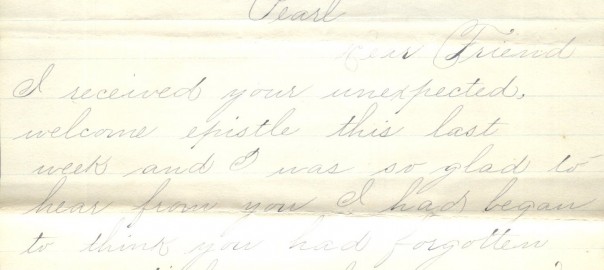 Pearl
Dear Friend
I received your unexpected,
welcome epistle this last
week and I was so glad to
hear from you I had began
to think you had forgotten